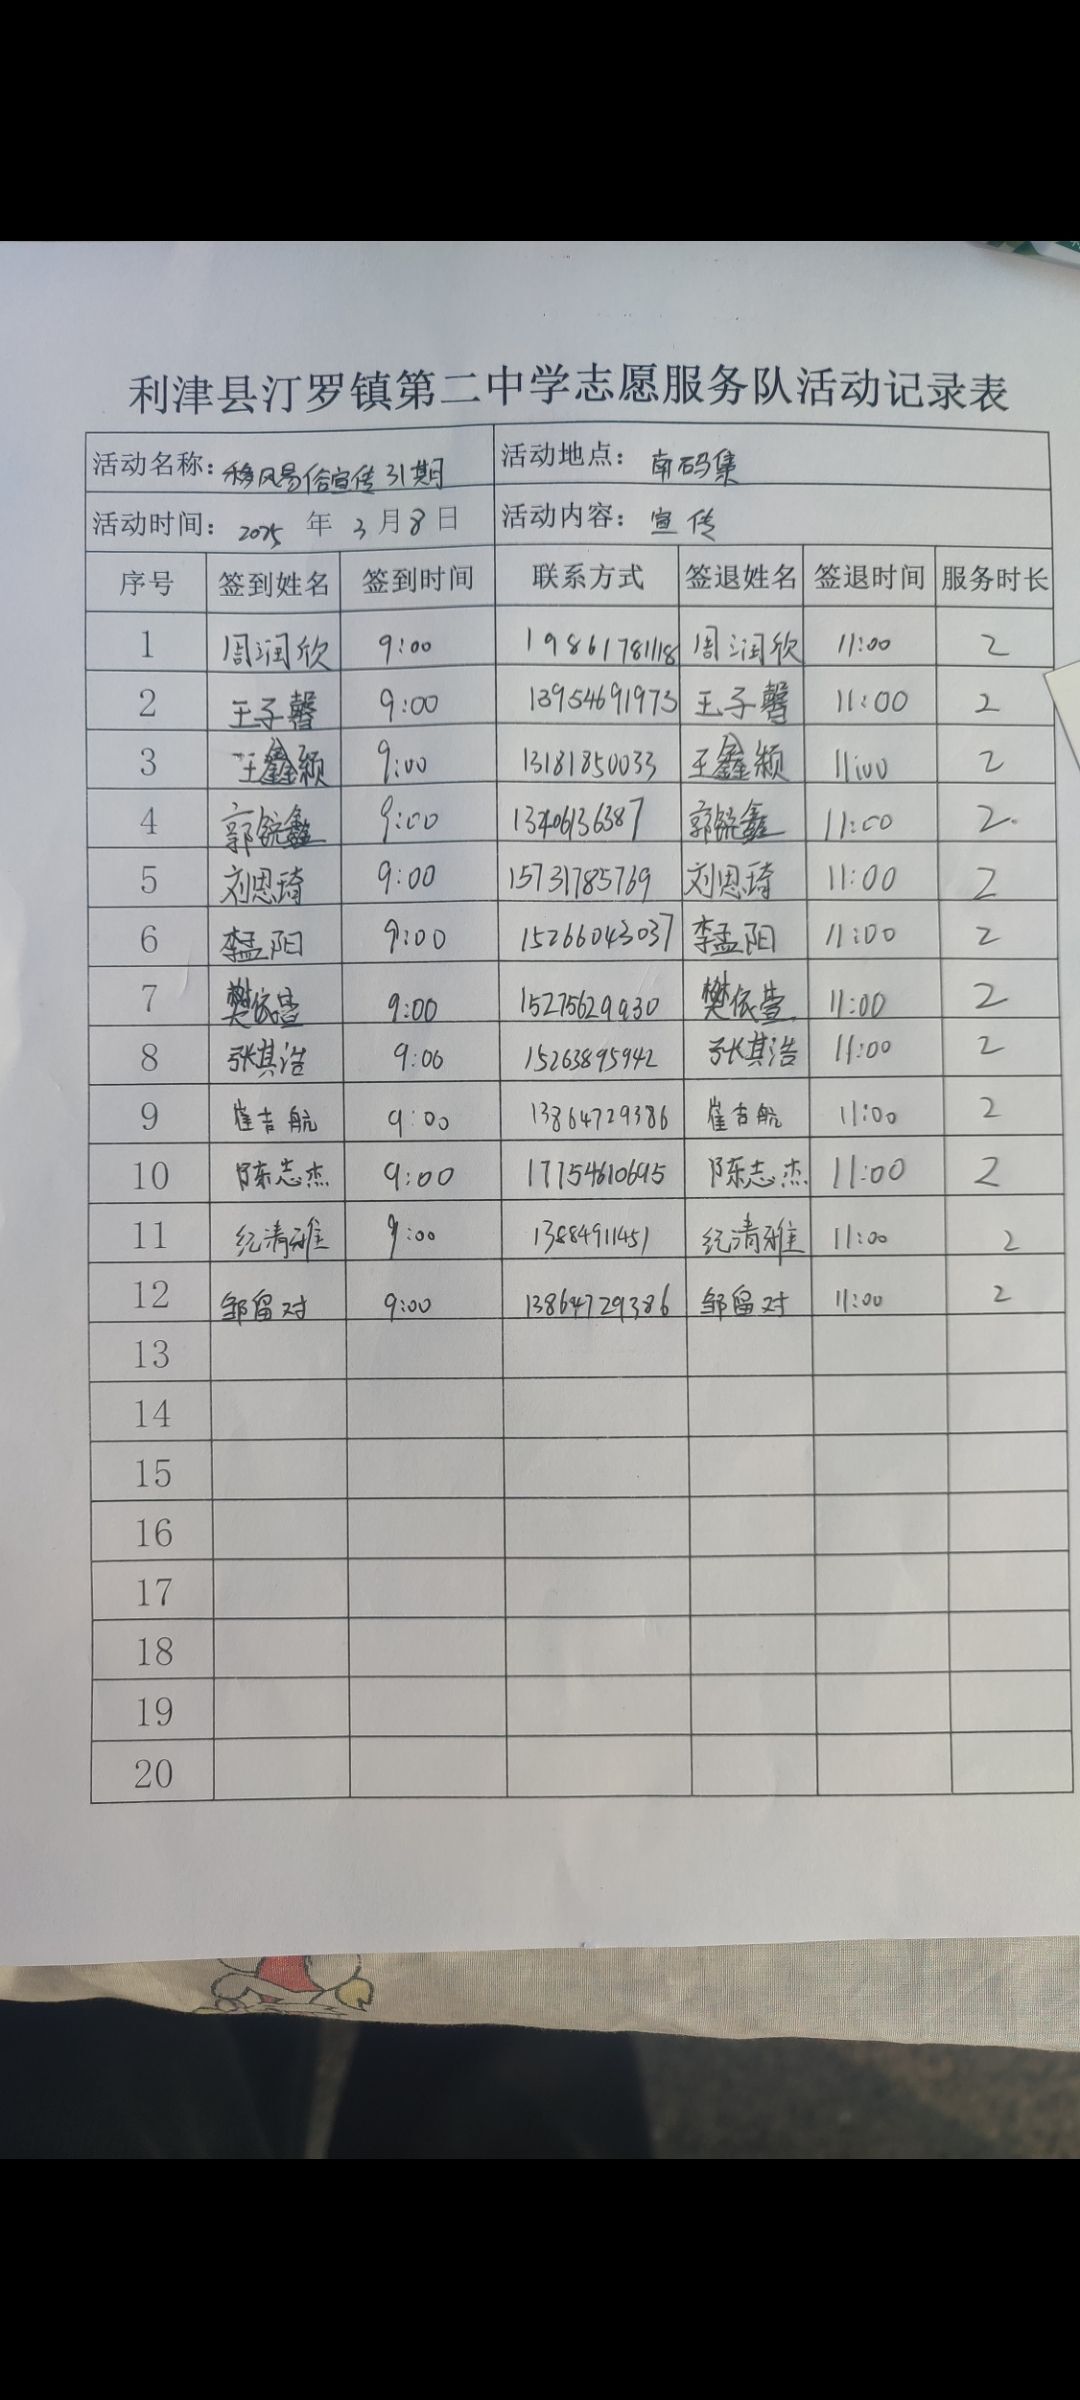 利津县汀罗镇第二中学志愿服务队活动记录表
活动名称：移风易俗宣传31期 活动地点：南码集
活动时间：2025 年 3 月 8 日 活动内容：宣传
序号 签到姓名 签到时间 联系方式 签退姓名 签退时间 服务时长
1 周润欣 9:00 19861781118 周润欣 11:00 2
2 王子馨 9:00 13954691973 王子馨 11:00 2
3 王鑫颖 9:00 13181850033 王鑫颖 11:00 2
4 郭锐鑫 9:00 13406136387 郭锐鑫 11:00 2
5 刘恩琦 9:00 15731785769 刘恩琦 11:00 2
6 李孟阳 9:00 15266043037 李孟阳 11:00 2
7 樊依萱 9:00 15275629930 樊依萱 11:00 2
8 张其浩 9:00 15263895942 张其浩 11:00 2
9 崔吉航 9:00 13864729386 崔吉航 11:00 2
10 陈志杰 9:00 17754610695 陈志杰 11:00 2
11 纪清雅 9:00 13884911451 纪清雅 11:00 2
12 邹留对 9:00 13864729386 邹留对 11:00 2
13
14
15
16
17
18
19
20